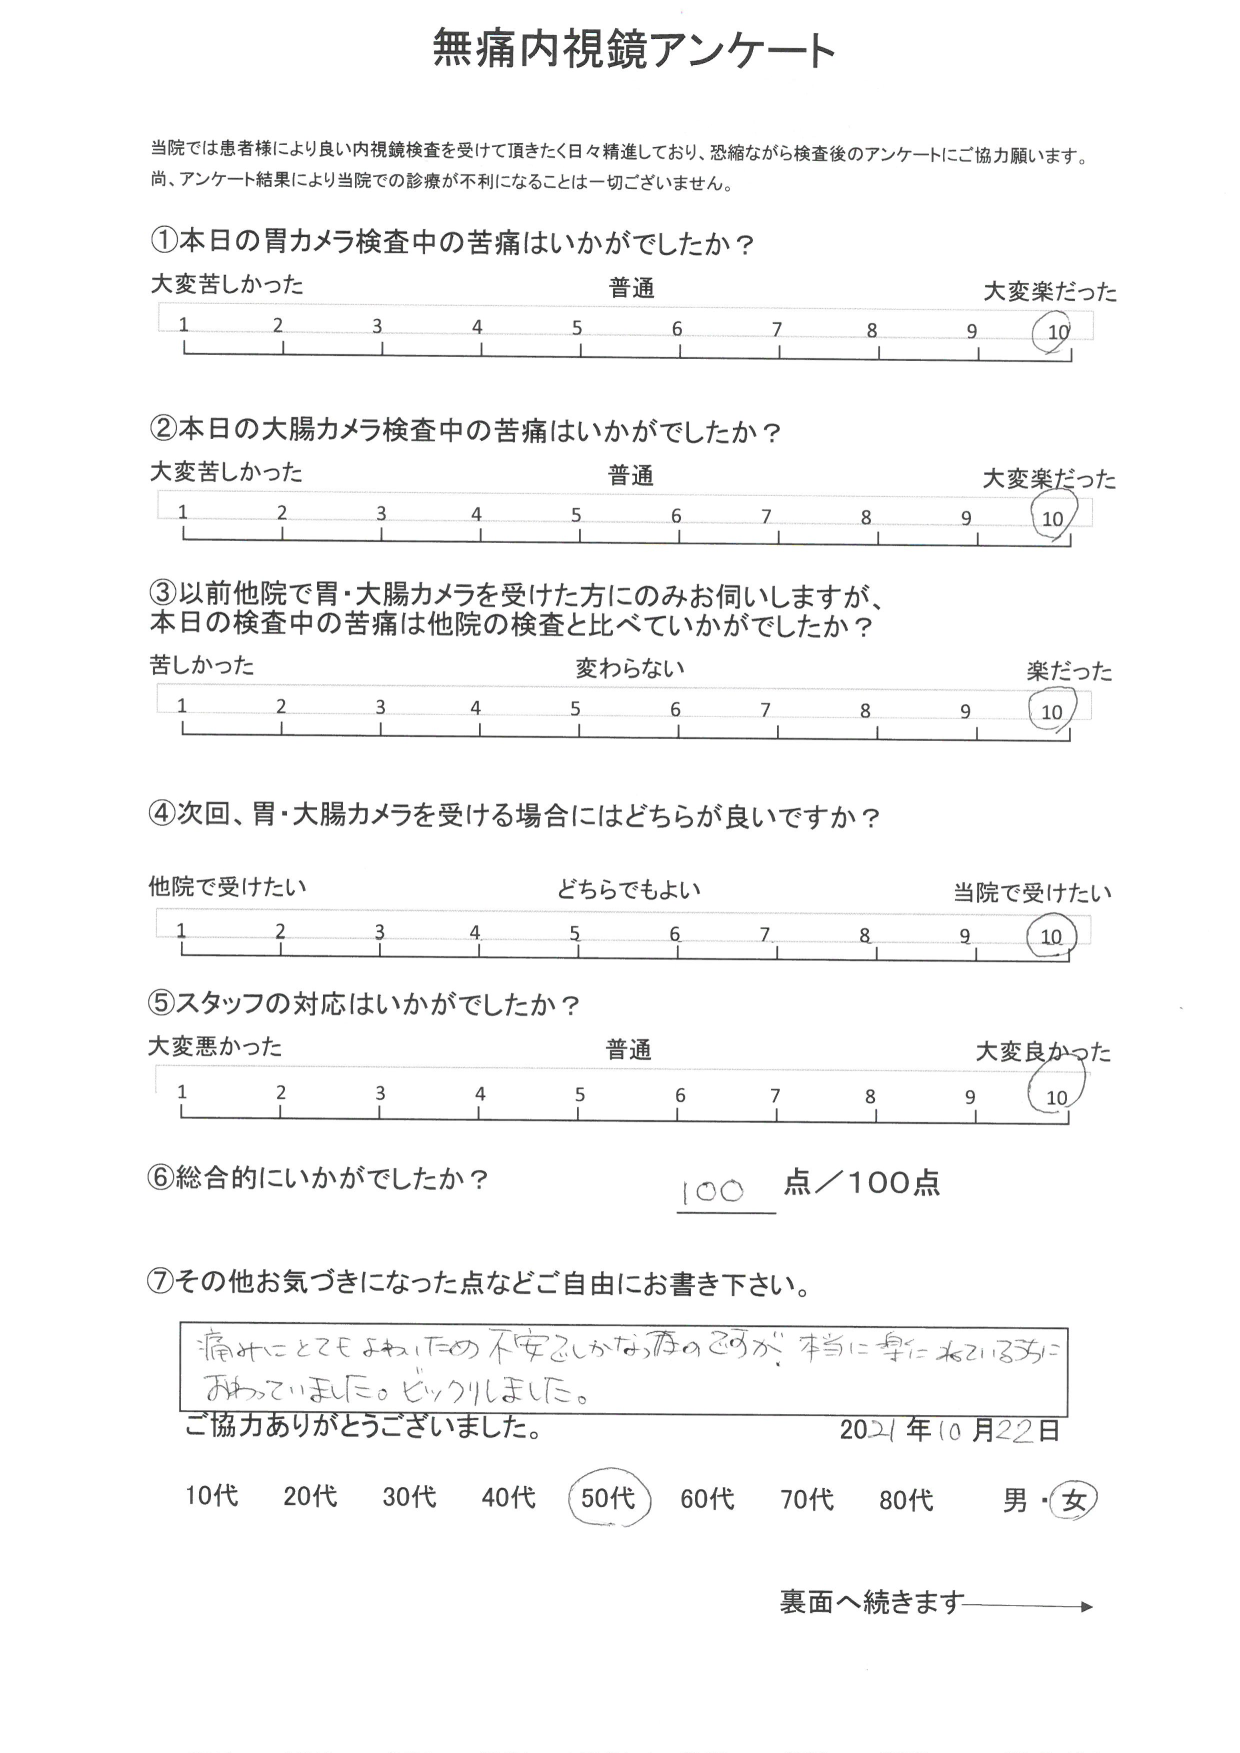 無痛内視鏡アンケート
当院では患者様により良い内視鏡検査を受けて頂きたく日々精進しており、恐縮ながら検査後のアンケートにご協力願います。
尚、アンケート結果により当院での診療が不利になることは一切ございません。
①本日の胃カメラ検査中の苦痛はいかがでしたか？
大変苦しかった 普通 大変楽だった
1 2 3 4 5 6 7 8 9 10
②本日の大腸カメラ検査中の苦痛はいかがでしたか？
大変苦しかった 普通 大変楽だった
1 2 3 4 5 6 7 8 9 10
③以前他院で胃・大腸カメラを受けた方にのみお伺いしますが、
本日の検査中の苦痛は他院の検査と比べていかがでしたか？
苦しかった 変わらない 楽だった
1 2 3 4 5 6 7 8 9 10
④次回、胃・大腸カメラを受ける場合にはどちらが良いですか？
他院で受けたい どちらでもよい 当院で受けたい
1 2 3 4 5 6 7 8 9 10
⑤スタッフの対応はいかがでしたか？
大変悪かった 普通 大変良かった
1 2 3 4 5 6 7 8 9 10
⑥総合的にいかがでしたか？ 100 点／100点
⑦その他お気づきになった点などご自由にお書き下さい。
痛みにとてもよわいため不安でしかなったのですが、本当に楽にねているうちに
おわっていました。ビックリしました。
ご協力ありがとうございました。 2021年10月22日
10代 20代 30代 40代 50代 60代 70代 80代 男・女
裏面へ続きます